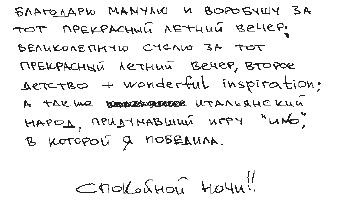 БЛАГОДАРЮ МАМУЛЮ И ВОРОБУШУ ЗА
ТОТ ПРЕКРАСНЫЙ ЛЕТНИЙ ВЕЧЕР;
ВЕЛИКОЛЕПНУЮ СУСЛЮ ЗА ТОТ
ПРЕКРАСНЫЙ ЛЕТНИЙ ВЕЧЕР, ВТОРОЕ
ДЕТСТВО + wonderful inspiration;
А ТАКЖЕ ИТАЛЬЯНСКИЙ
НАРОД, ПРИДУМАВШИЙ ИГРУ
В КОТОРОЙ Я ПОБЕДИЛА.
СПОКОЙНОЙ НОЧИ!!